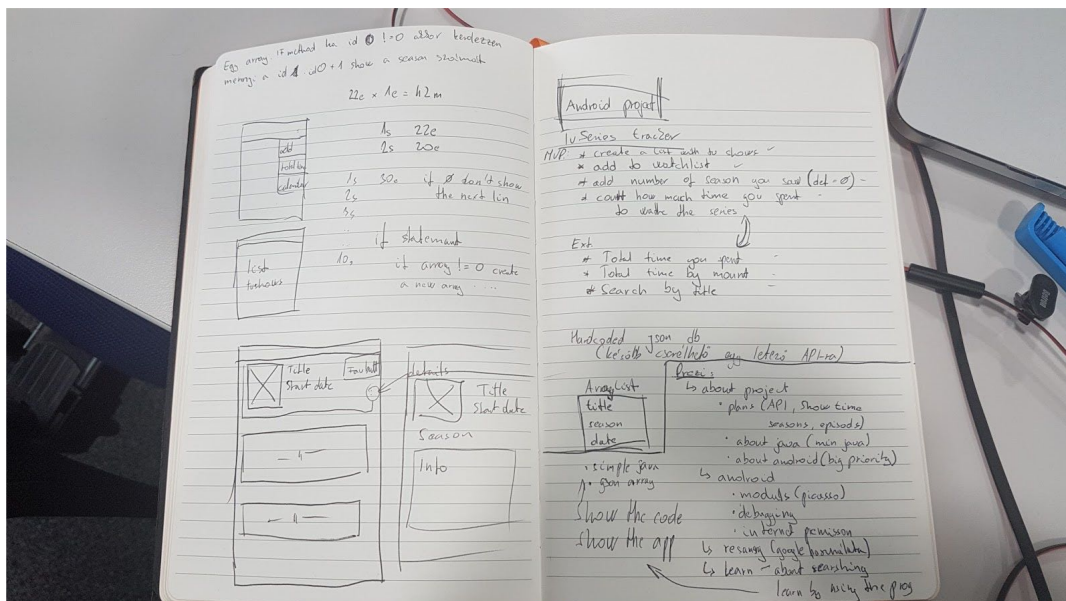 Egy array. if method ha id 0 != 0 akkor kérdezzen
mennyi a id 1 id0 + 1 show a season számát
22e × 1e = 42m
1s 22e
2s 20e
add
calendar
1s 30e if 0 don't show
2s the next lin
3s
if statemant
10s if array != 0 create
a new array ....
list
tvshows
Title
Start date
Fav butt
details
Title
Start date
Season
Info
Android project
Tv Series tracker
MVP * create a list with tv shows -
* add to watchlist
* add number of season you saw (def = 0) -
* count how much time you spent -
to watch the series
Ext
* Total time you spent -
* Total time by mount -
* Search by title -
Hardcoded json db
(később cserélhető egy létező API-ra)
ArrayList
title
season
date
· simple java
· gson array
Show the code
Show the app
Prezi:
↳ about project
· plans (API, Show time
seasons, episods)
· about java (min java)
· about android (big priority)
↳ android
· moduls (picasso)
· debugging
· internet permisson
↳ (google
↳ learn - about searshing
learn by using the prog